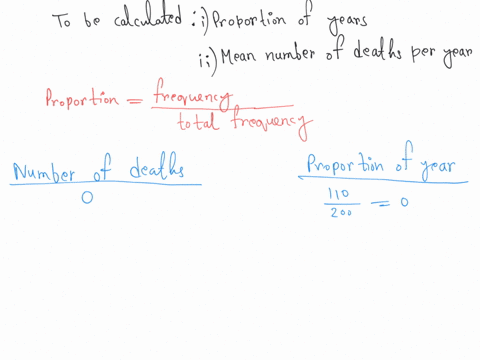 To be calculated : i) Proportion of years
ii) Mean number of deaths per year
Proportion = frequency / total frequency
Number of deaths	Proportion of year
0	110/200 = 0